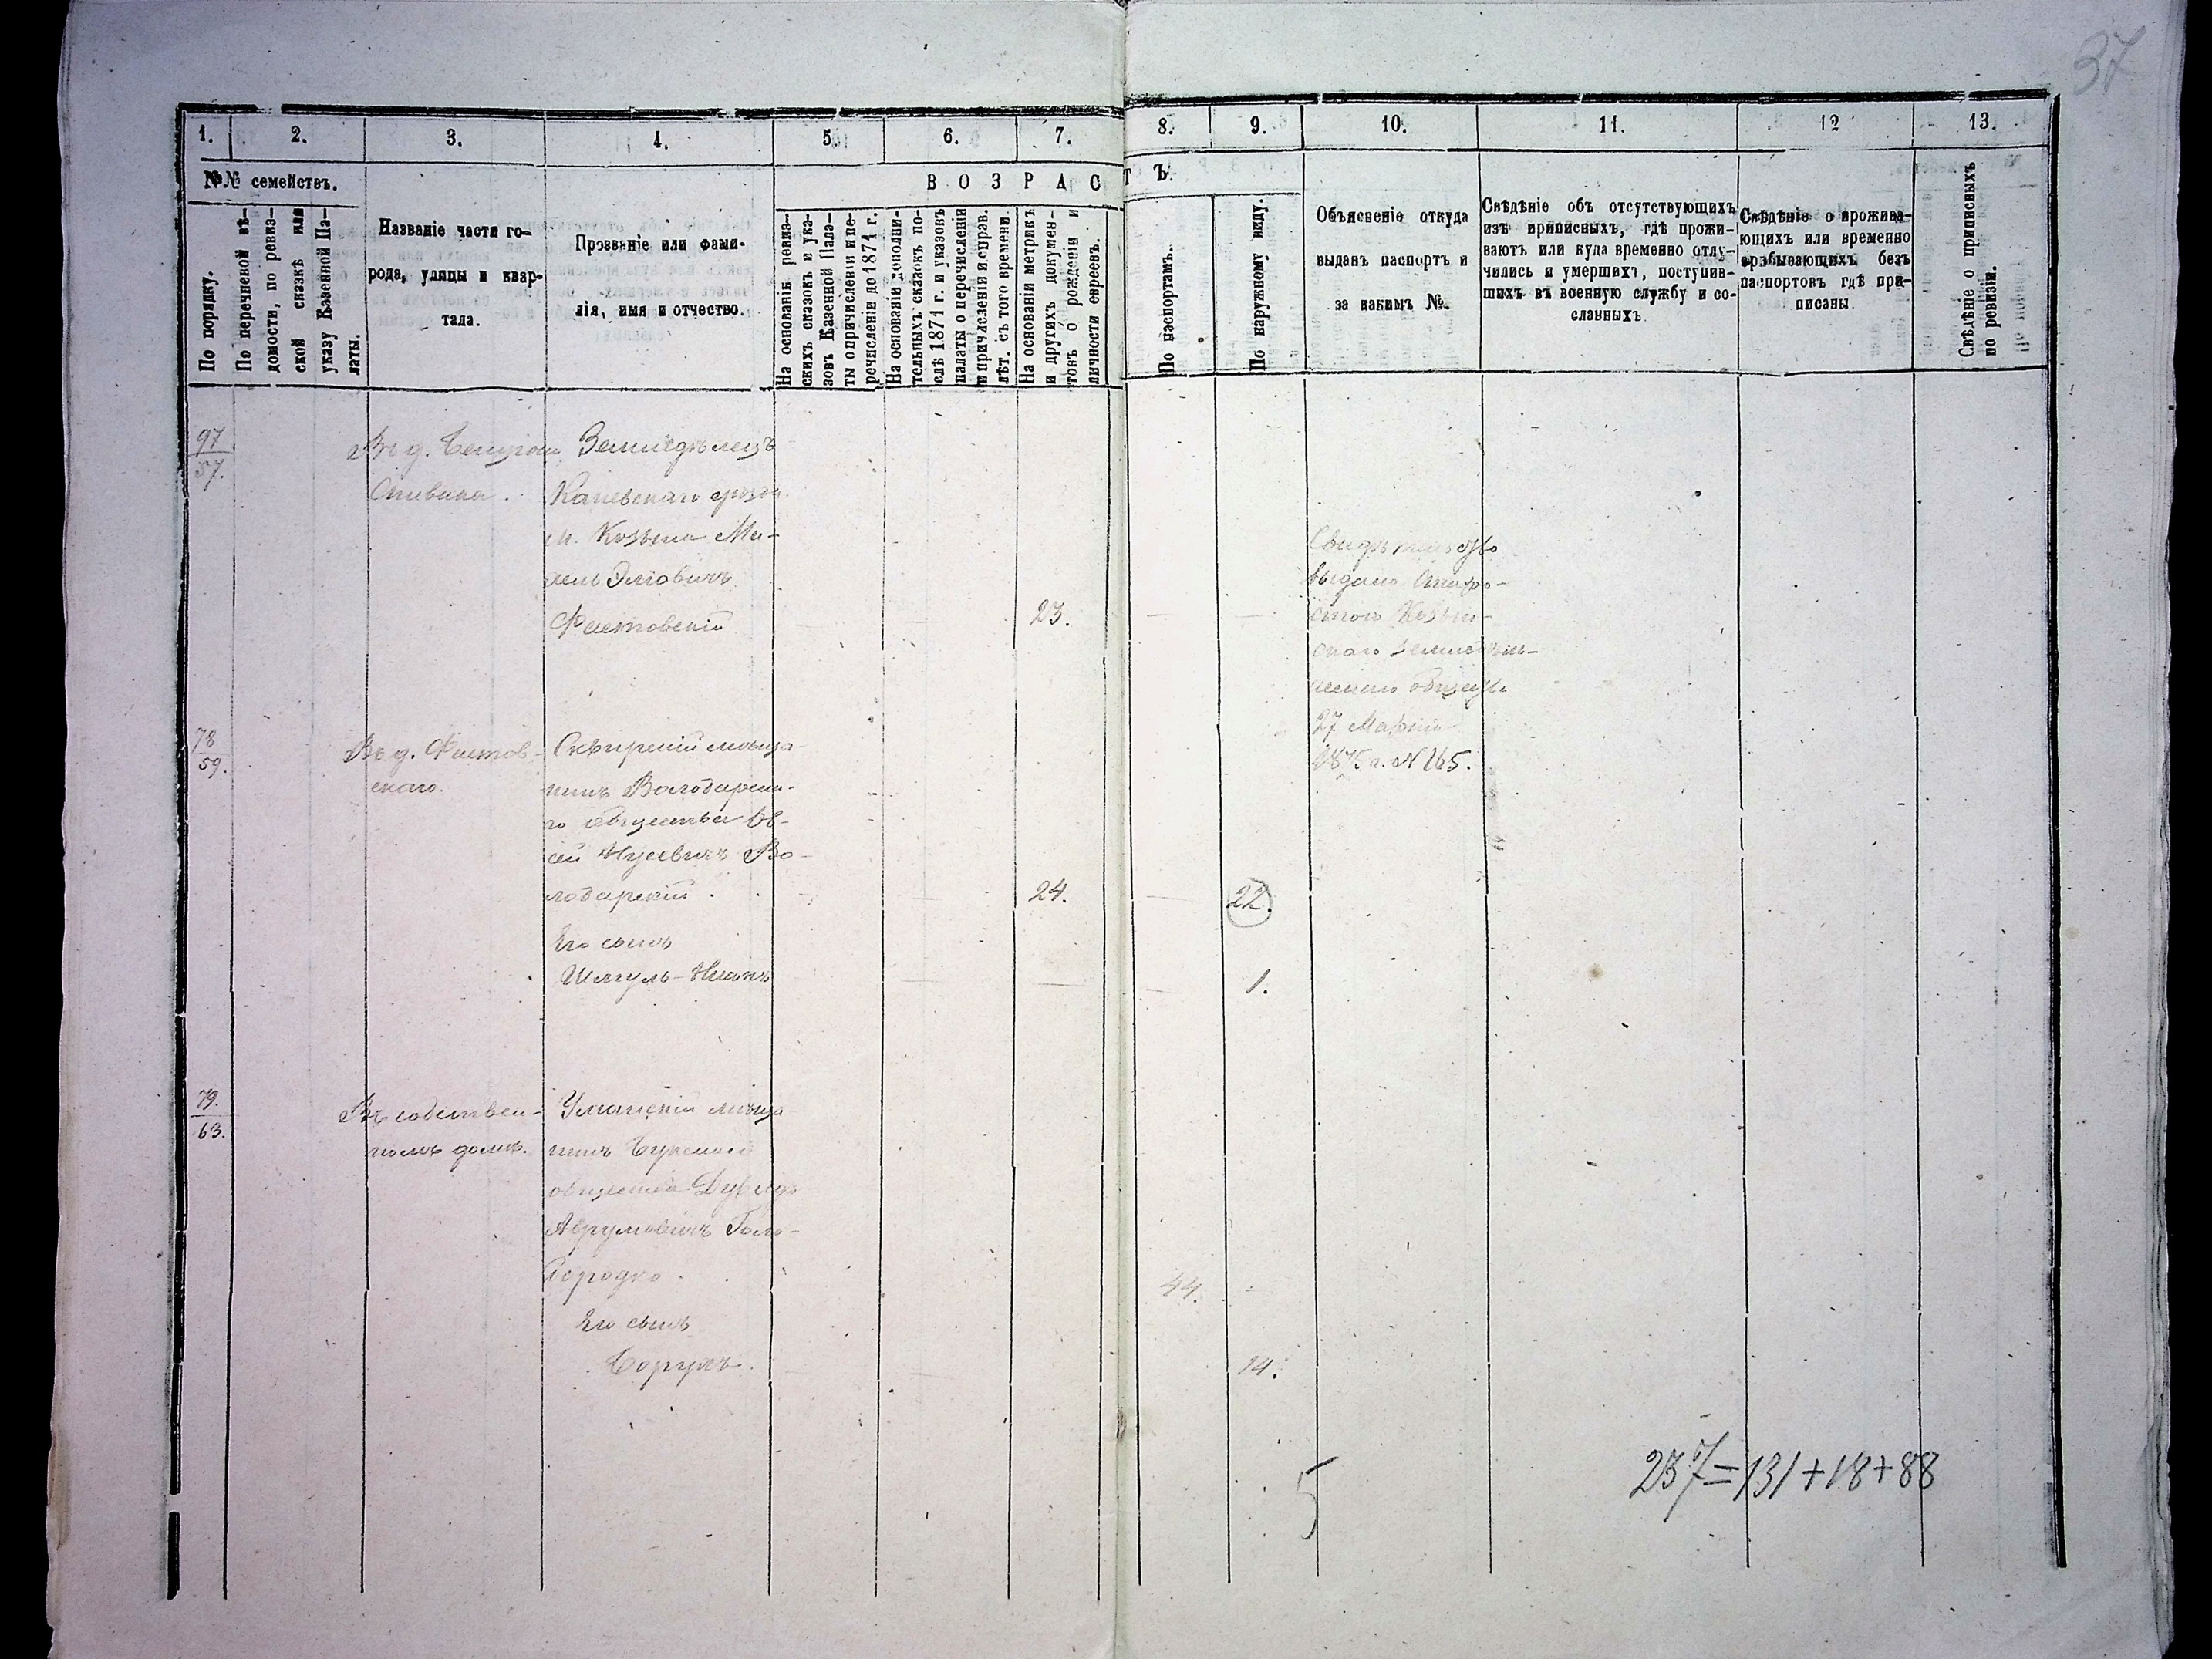 37
1.
2.
3.
4.
5.
6.
7.
8.
9.
10.
11.
12
13.
№№ семействъ.
По порядку.
По перечневой вѣ-
домости, по ревиз-
ской сказкѣ или
указу Казенной Па-
латы.
Названіе части го-
рода, улицы и квар-
тала.
Прозваніе или фами-
лія, имя и отчество.
ВОЗРАСТЪ.
На основаніи ревиз-
скихъ сказокъ и ука-
зовъ Казенной Пала-
ты о причисленіи и пе-
речисленіи до 1871 г.
На основаніи дополни-
тельныхъ сказокъ по-
слѣ 1871 г. и указовъ
палаты о перечисленіи
и причисленіи и справ.
лѣт. съ того времени.
На основаніи метрикъ
и другихъ докумен-
товъ о рожденіи и
личности евреевъ.
По паспортамъ.
По наружному виду.
Объясненіе откуда
выданъ паспортъ и
за какимъ №.
Свѣдѣніе объ отсутствующихъ
изъ приписныхъ, гдѣ прожи-
ваютъ или куда временно отлу-
чились и умершихъ, поступив-
шихъ въ военную службу и со-
сланныхъ
Свѣдѣніе о прожива-
ющихъ или временно
пребывающихъ безъ
паспортовъ гдѣ при-
писаны.
Свѣдѣніе о приписныхъ
по ревизіи.
97
57.
Въ д.
Спивака.
Земледѣлецъ
Каневскаго уѣзда
м. Козина Ма-
Эліовичъ
Фастовскій
23.
Свидѣтельство
выдано Старо-
стою Козин-
скаго земледѣль-
ческаго общества
27
1875 г. № 265.
78
59.
Въ д. Фастов-
скаго.
Сквирскій мѣща-
нинъ Володарска-
го общества Ов-
сей Нусевичъ Во-
лодарскій.
24.
22.
Его сынъ
Шмуль-
1.
79.
63.
Въ собствен-
номъ домѣ.
Уманскій мѣща
нинъ Букскаго
общества Дувидъ
Аврумовичъ Голо-
бородко.
44.
Его сынъ
Борухъ.
14.
5
237=131+18+88